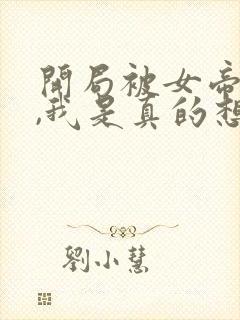 開局被女帝
,我是真的想
劉小慧